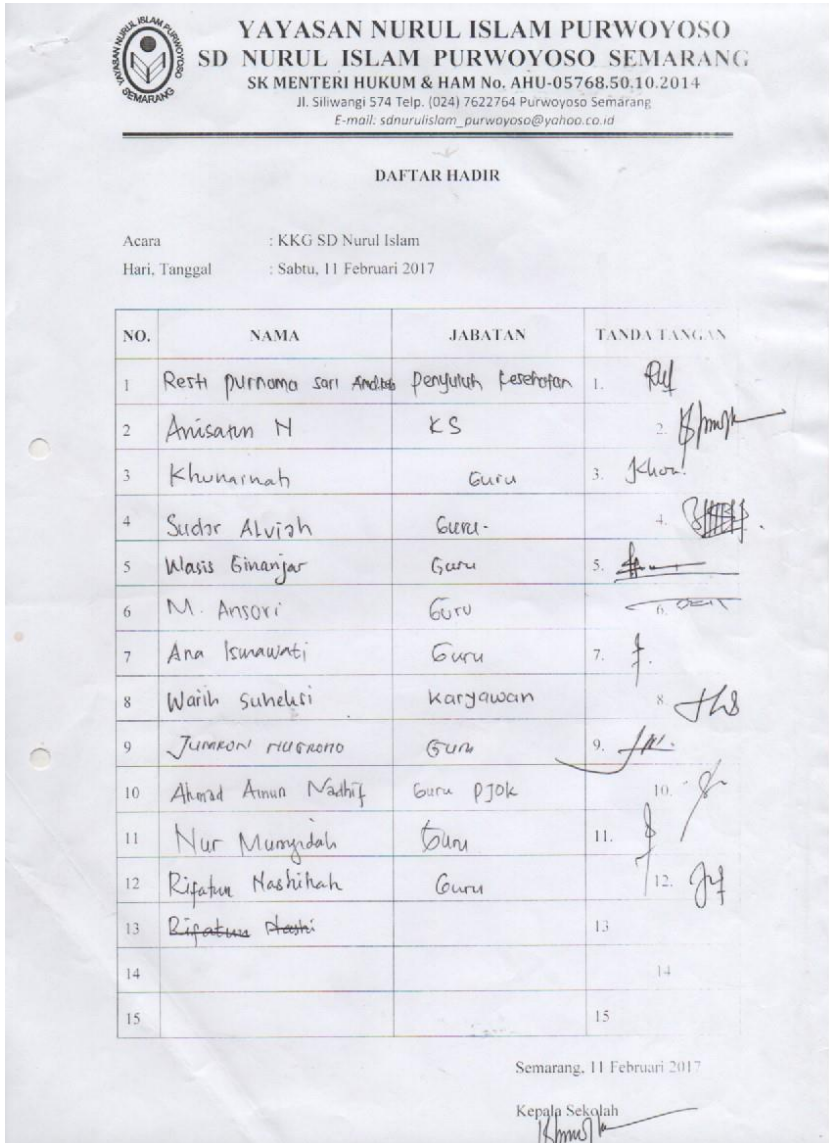 YAYASAN NURUL ISLAM PURWOYOSO
SEMARANG
YAYASAN NURUL ISLAM PURWOYOSO
SD NURUL ISLAM PURWOYOSO SEMARANG
SK MENTERI HUKUM & HAM No. AHU-05768.50.10.2014
Jl. Siliwangi 574 Telp. (024) 7622764 Purwoyoso Semarang
E-mail: sdnurulislam_purwoyoso@yahoo.co.id
DAFTAR HADIR
Acara : KKG SD Nurul Islam
Hari, Tanggal : Sabtu, 11 Februari 2017
NO. NAMA JABATAN TANDA TANGAN
1 Resti purnama sari penyuluh kesehatan 1.
2 Anisatun N KS 2.
3 Khunainah Guru 3.
4 Sudar Alviah Guru- 4.
5 Wasis Ginanjar Guru 5.
6 M. Ansori Guru 6.
7 Ana Ismawati Guru 7.
8 Warih Suheksi Karyawan 8.
9 JUMRONI NUGROHO Guru 9.
10 Ahmad Amun Nadhif Guru PJOK 10.
11 Nur Mursyidah Guru 11.
12 Rifatun Nashihah Guru 12.
13 Rifatun Nashi 13
14 14
15 15
Semarang, 11 Februari 2017
Kepala Sekolah